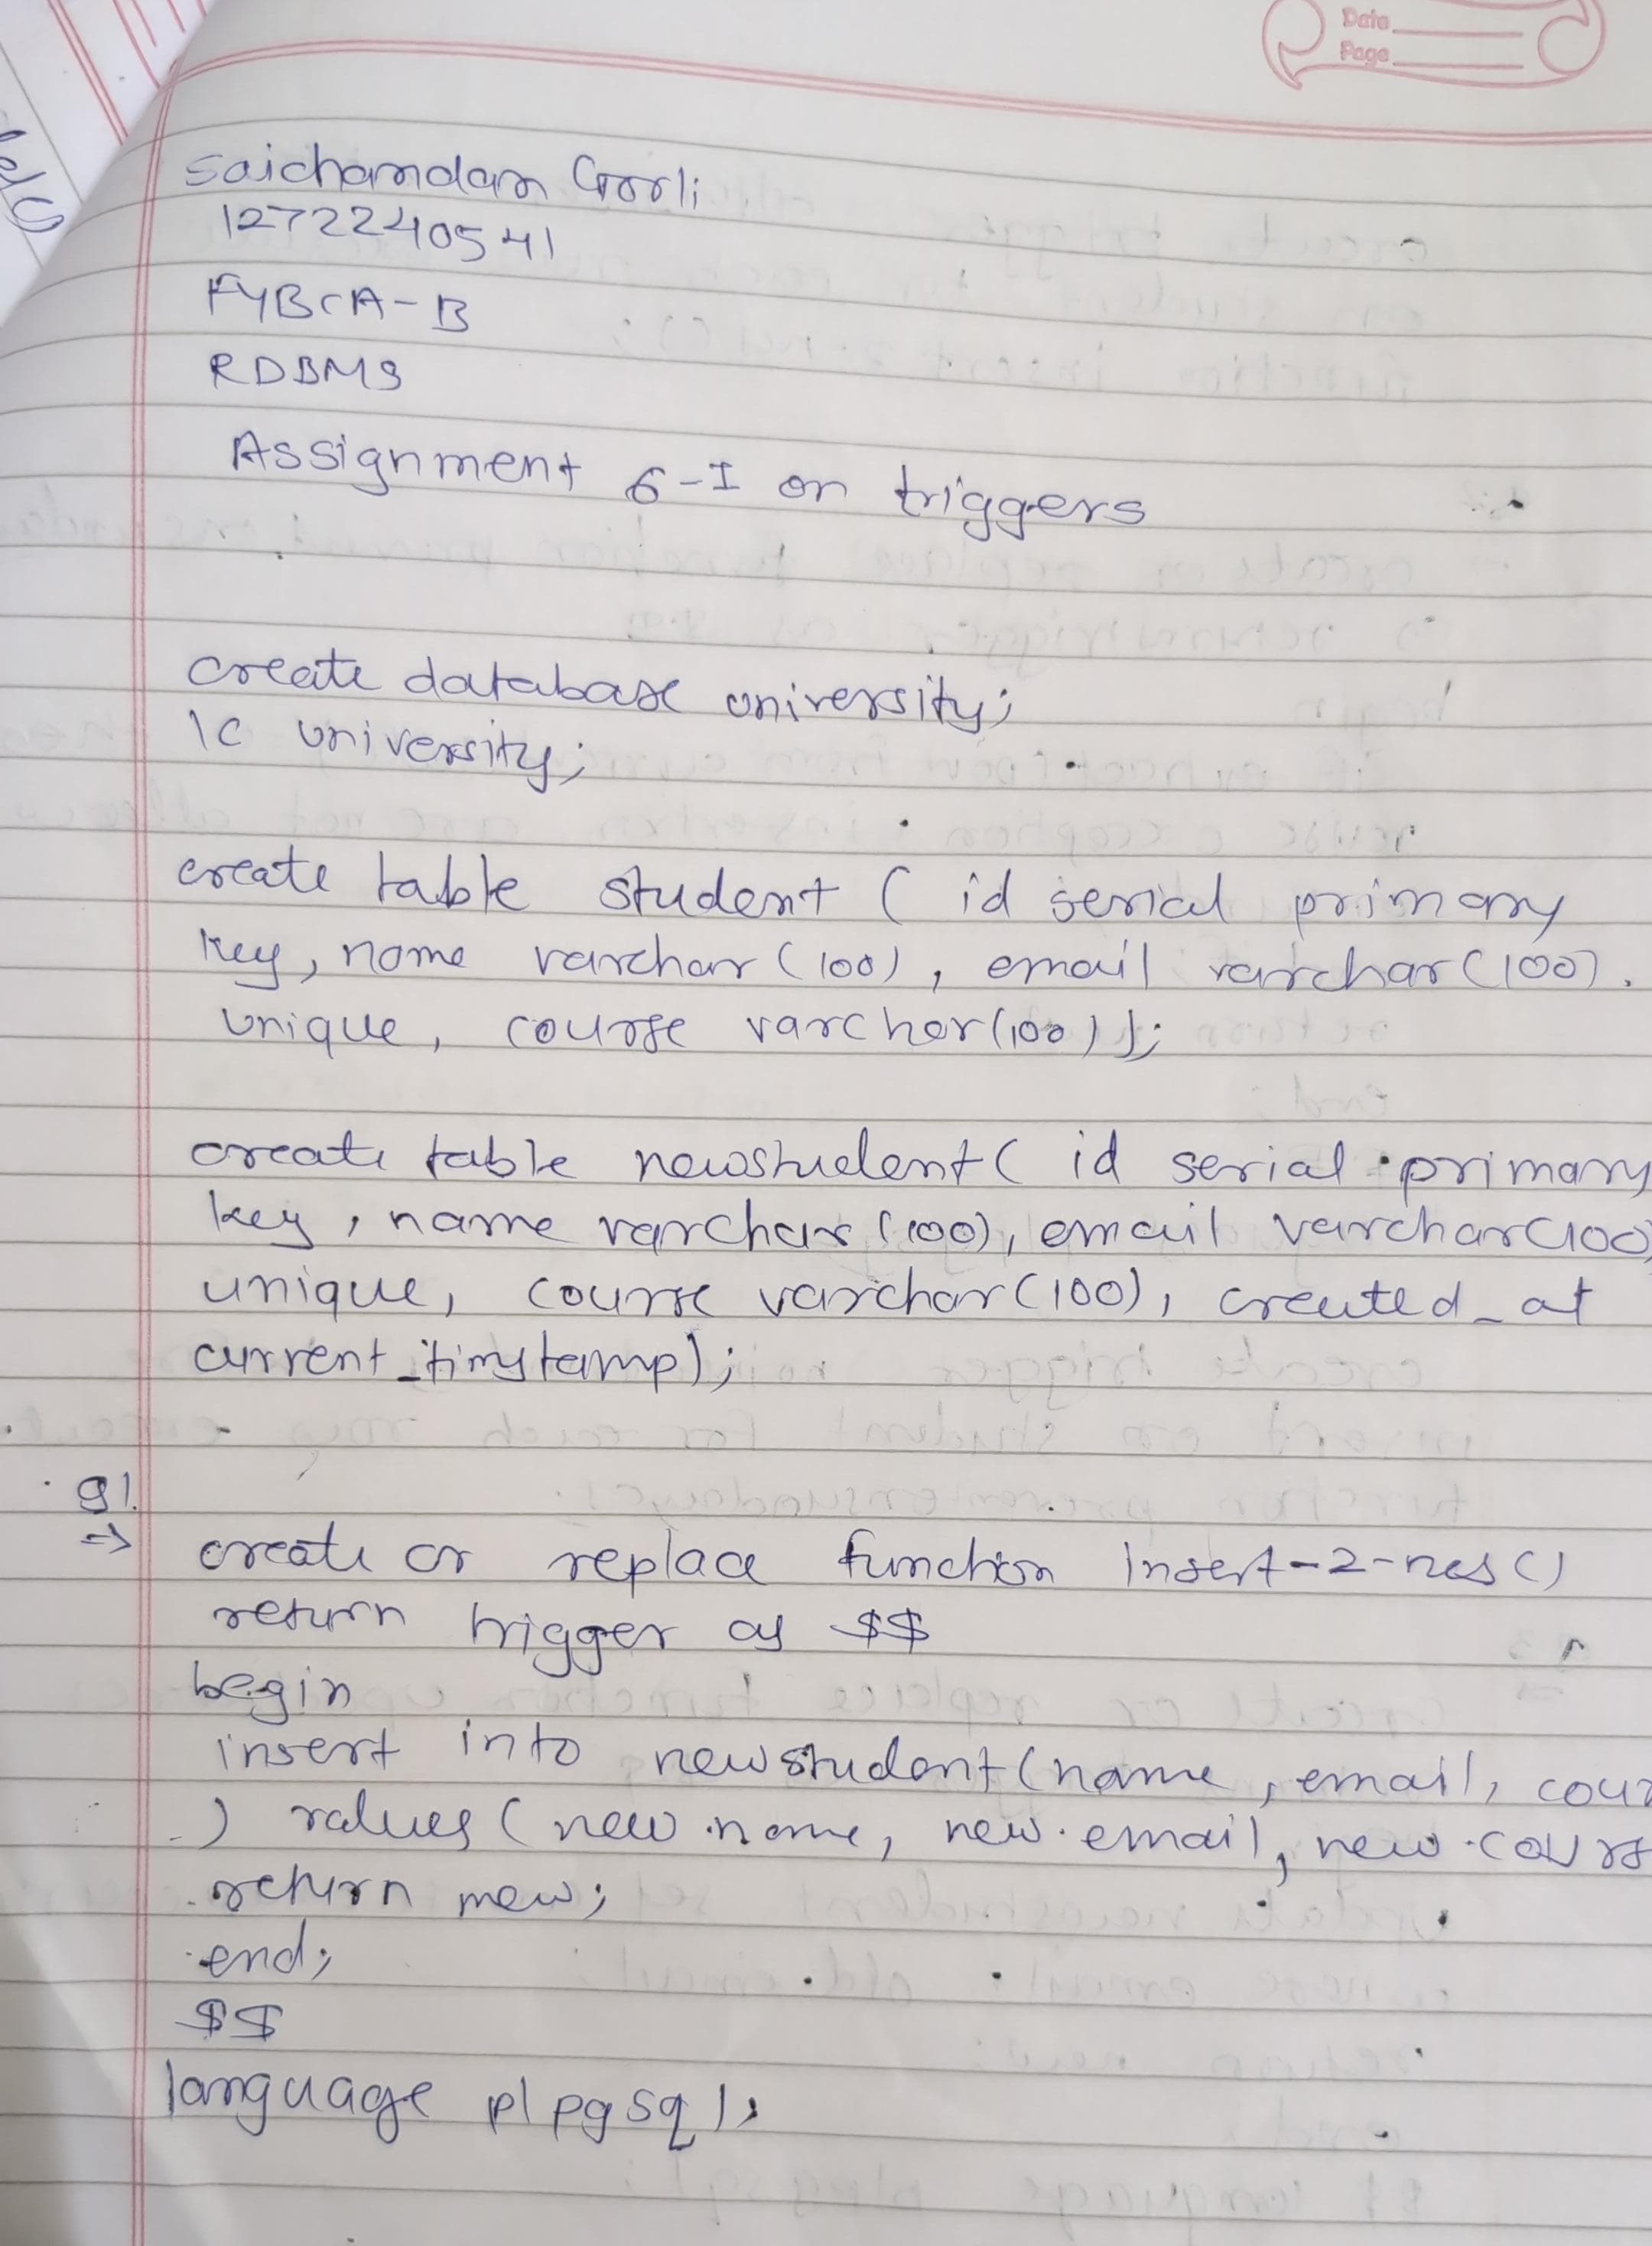 Date
Page
Saichandan Gorli
1272240541
FYBCA-B
RDBMS
Assignment 6-I on triggers
create database university;
\c university;
create table student ( id serial primary
key, name varchar (100), email varchar (100).
unique, course varchar (100));
create table newstudent ( id serial primary
key, name varchar (100), email varchar (100)
unique, course varchar (100), created_at
current_timstamp);
Q1.
=> create or replace function insert-2-nes ()
return trigger as $$
begin
insert into newstudent (name, email, cour
) values ( new.name, new.email, new.cours
return new;
end;
$$
language plpgsql;